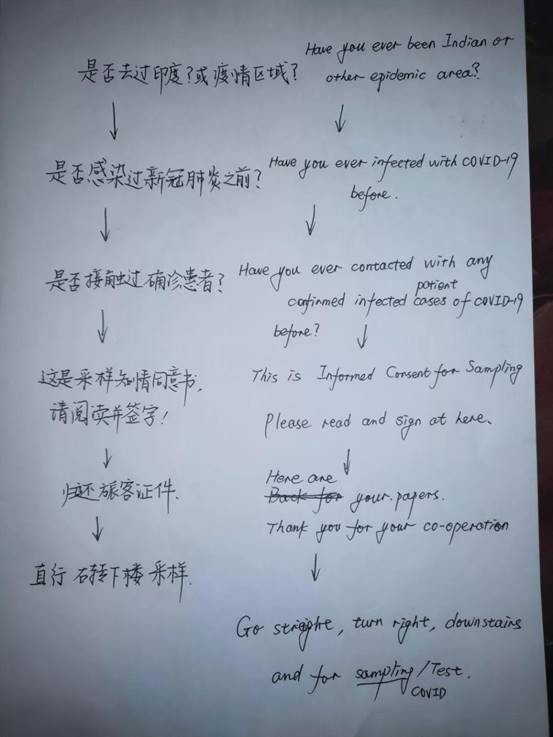 是否去过印度?或疫情区域?
Have you ever been Indian or
other epidemic area?
是否感染过新冠肺炎之前?
Have you ever infected with COVID-19
before.
是否接触过确诊患者?
Have you ever contacted with any
patient
confirmed infected cases of COVID-19
before?
这是采样知情同意书,
请阅读并签字!
This is Informed Consent for Sampling
Please read and sign at here.
归还旅客证件.
Here are
Back for your papers.
Thank you for your co-operation
直行 右转下楼 采样.
Go straight, turn right, downstairs
and for sampling/Test.
COVID